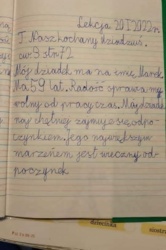 Lekcja 20 I 2022r.
T. Nasz kochany dziadzius.
ćw 3 str 72
Mój dziadek ma na imię Marek
Ma 59 lat. Radość sprawia my
wolny od pracy czas. Mój dziadek
naj chętniej zajmuje się odpo-
czynkiem. Jego największym
marzeniem jest wieczny od-
poczynek